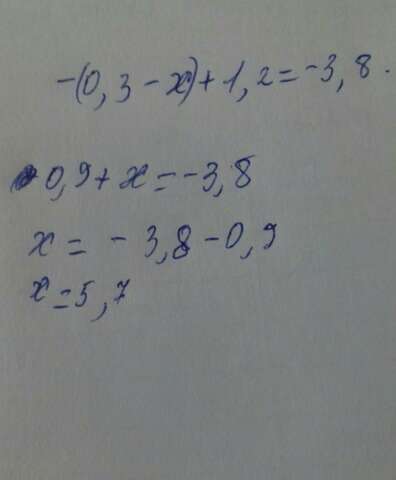 -(0,3-x)+1,2=-3,8.
0,9+x=-3,8
x=-3,8-0,9
x=5,7